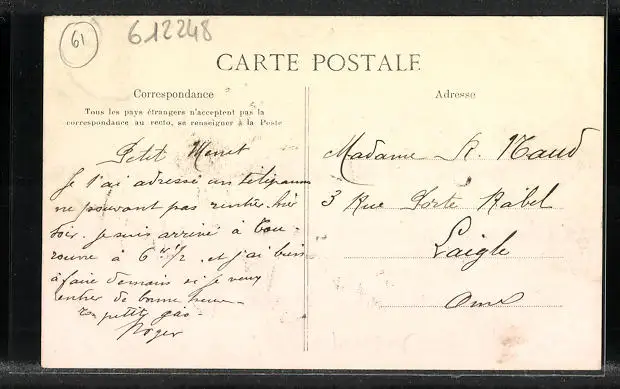 61
612248
CARTE POSTALE
Correspondance
Adresse
Tous les pays étrangers n'acceptent pas la
correspondance au recto, se renseigner à la Poste
Petit
Je t'ai adressé un
ne pouvant pas rentrer hier
soir. je suis arrivé à Tou-
rouvre à 6 h 1/2 et j'ai bien
à faire demain si je veux
rentrer de bonne heure
ton petit gas
Roger
Madame R. Naud
3 Rue Porte Rabel
Laigle
Orne